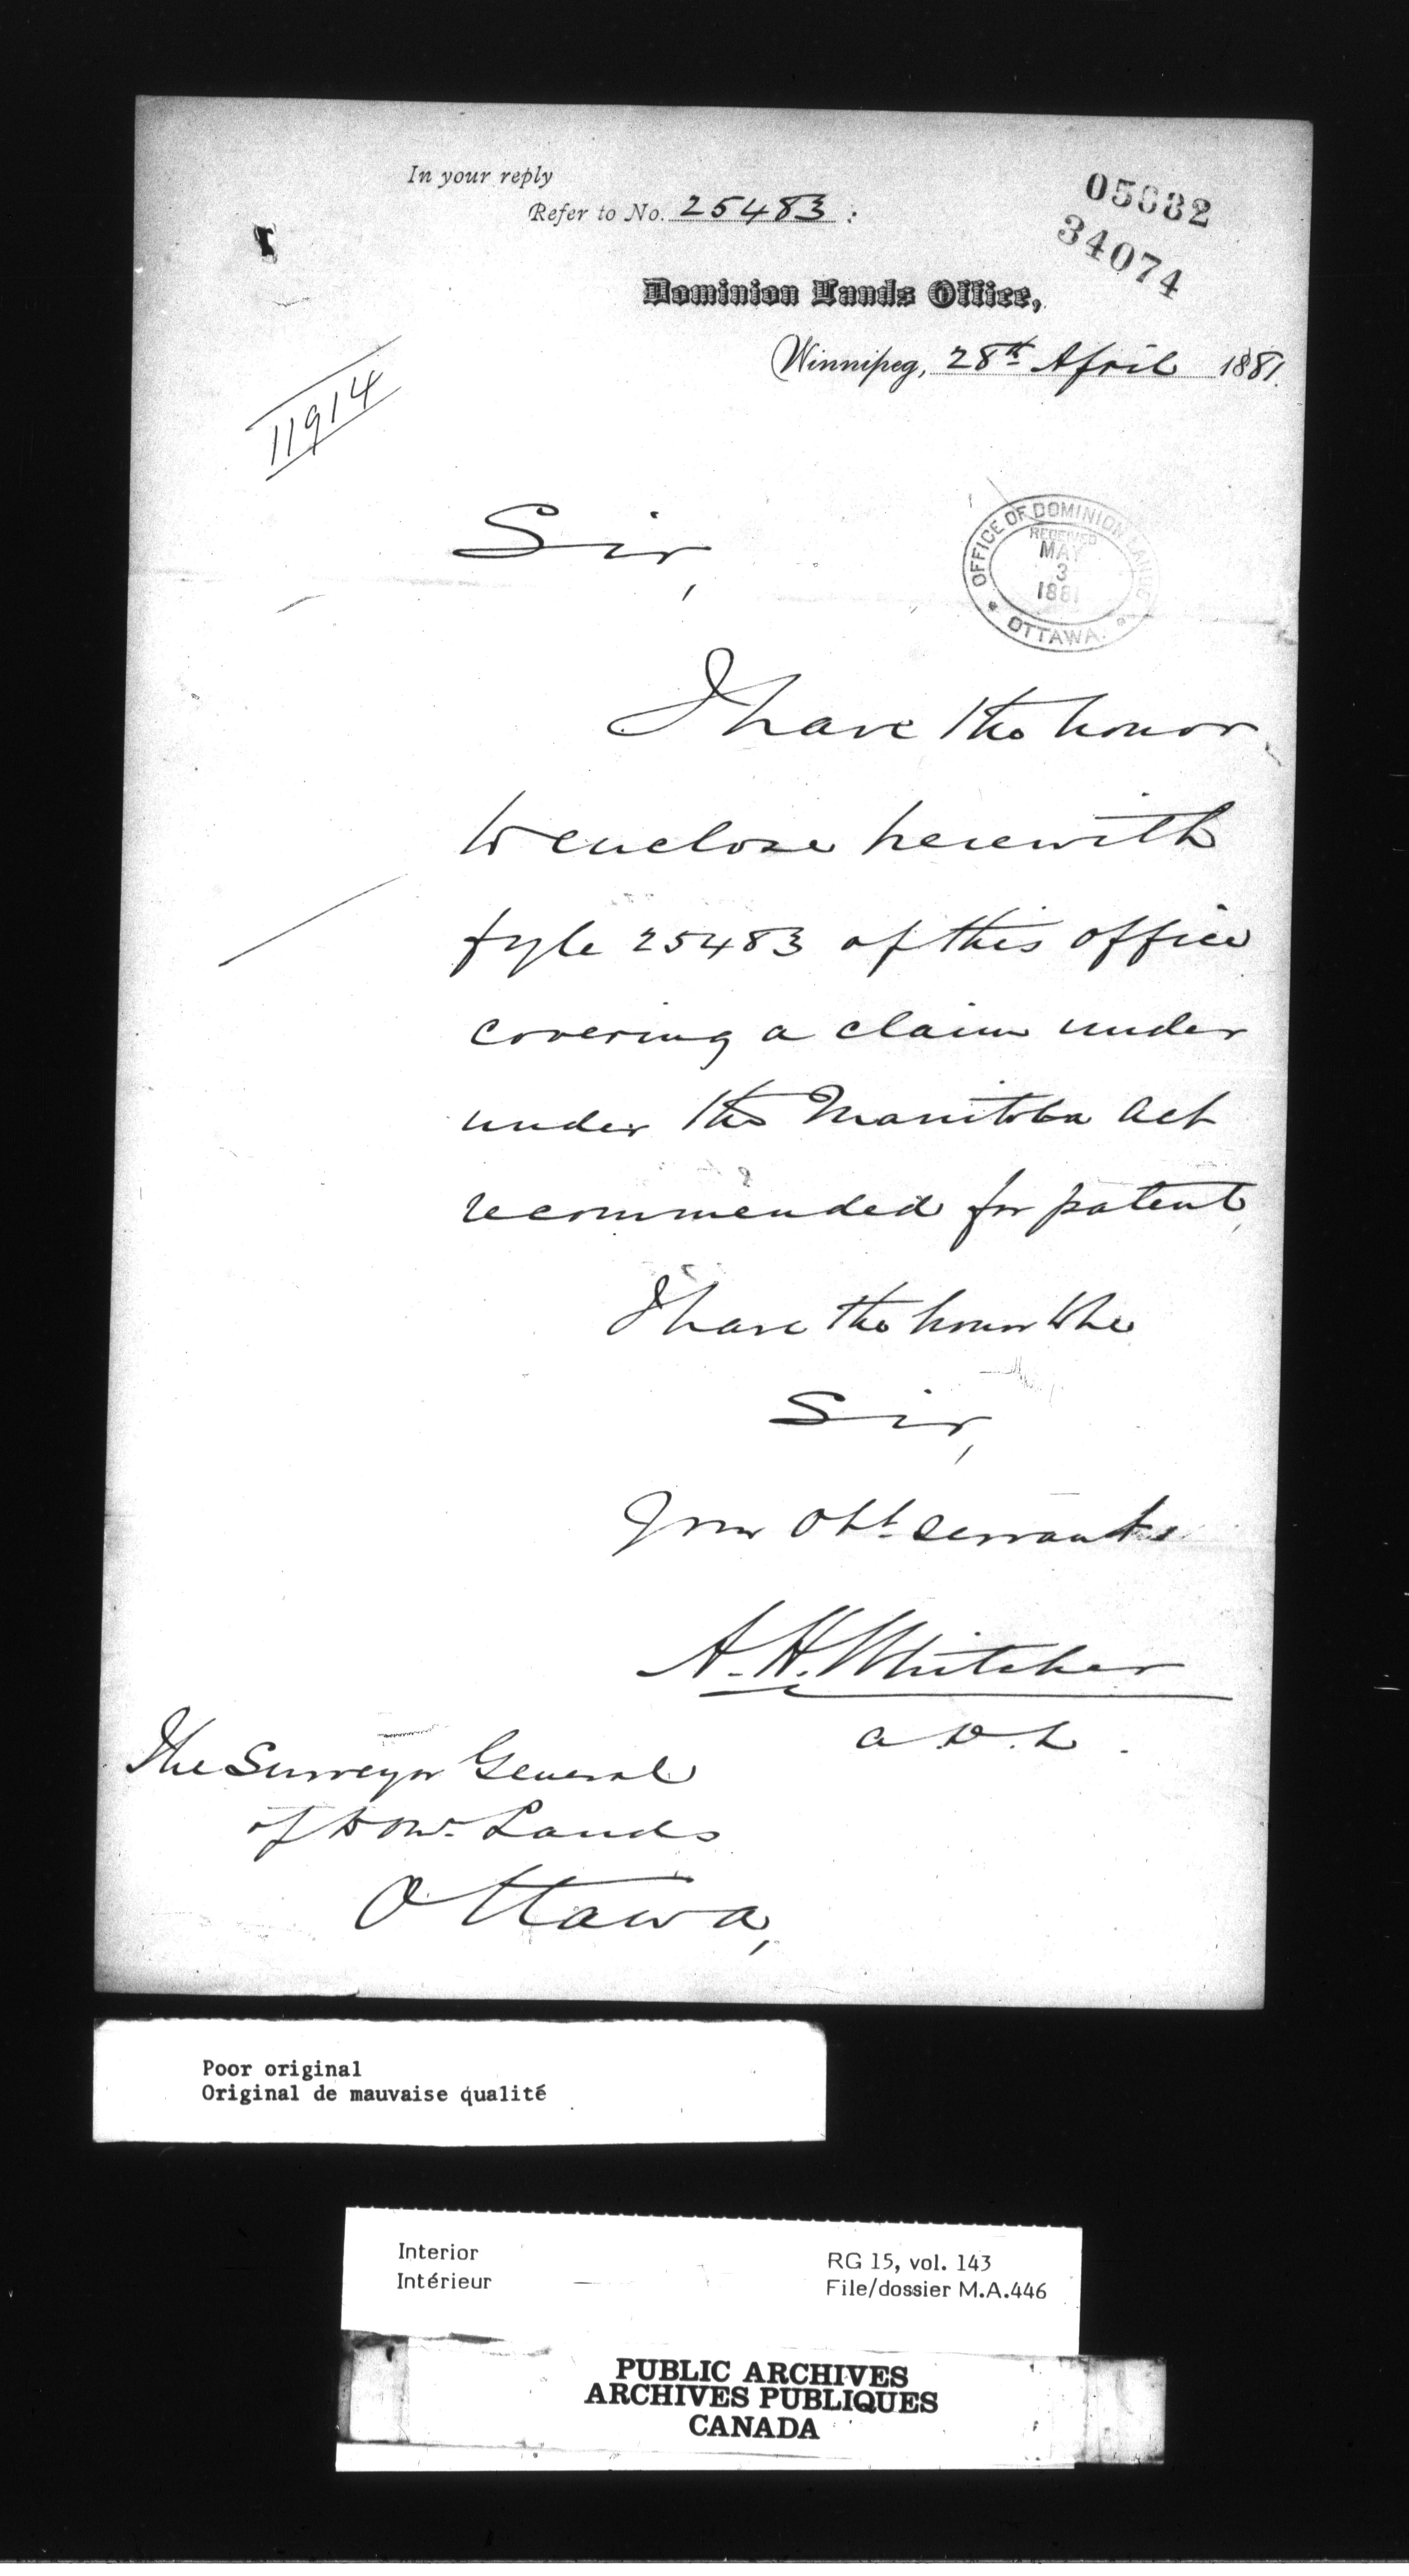 In your reply
Refer to No. 25483 :
34074
Dominion Lands Office,
Winnipeg, 28th April 1881.
11914
OFFICE OF DOMINION LANDS
RECEIVED
MAY
3
1881
OTTAWA.
Sir,
I have the honor
to enclose herewith
fyle 25483 of this office
covering a claim under
under the Manitoba Act
recommended for patent
I have the honor to be
Sir,
Your Obt. Servant
A. H. Whitcher
A.D.L.
The Surveyor General
of Dom. Lands
Ottawa,
Poor original
Original de mauvaise qualité
Interior
Intérieur
RG 15, vol. 143
File/dossier M.A.446
PUBLIC ARCHIVES
ARCHIVES PUBLIQUES
CANADA